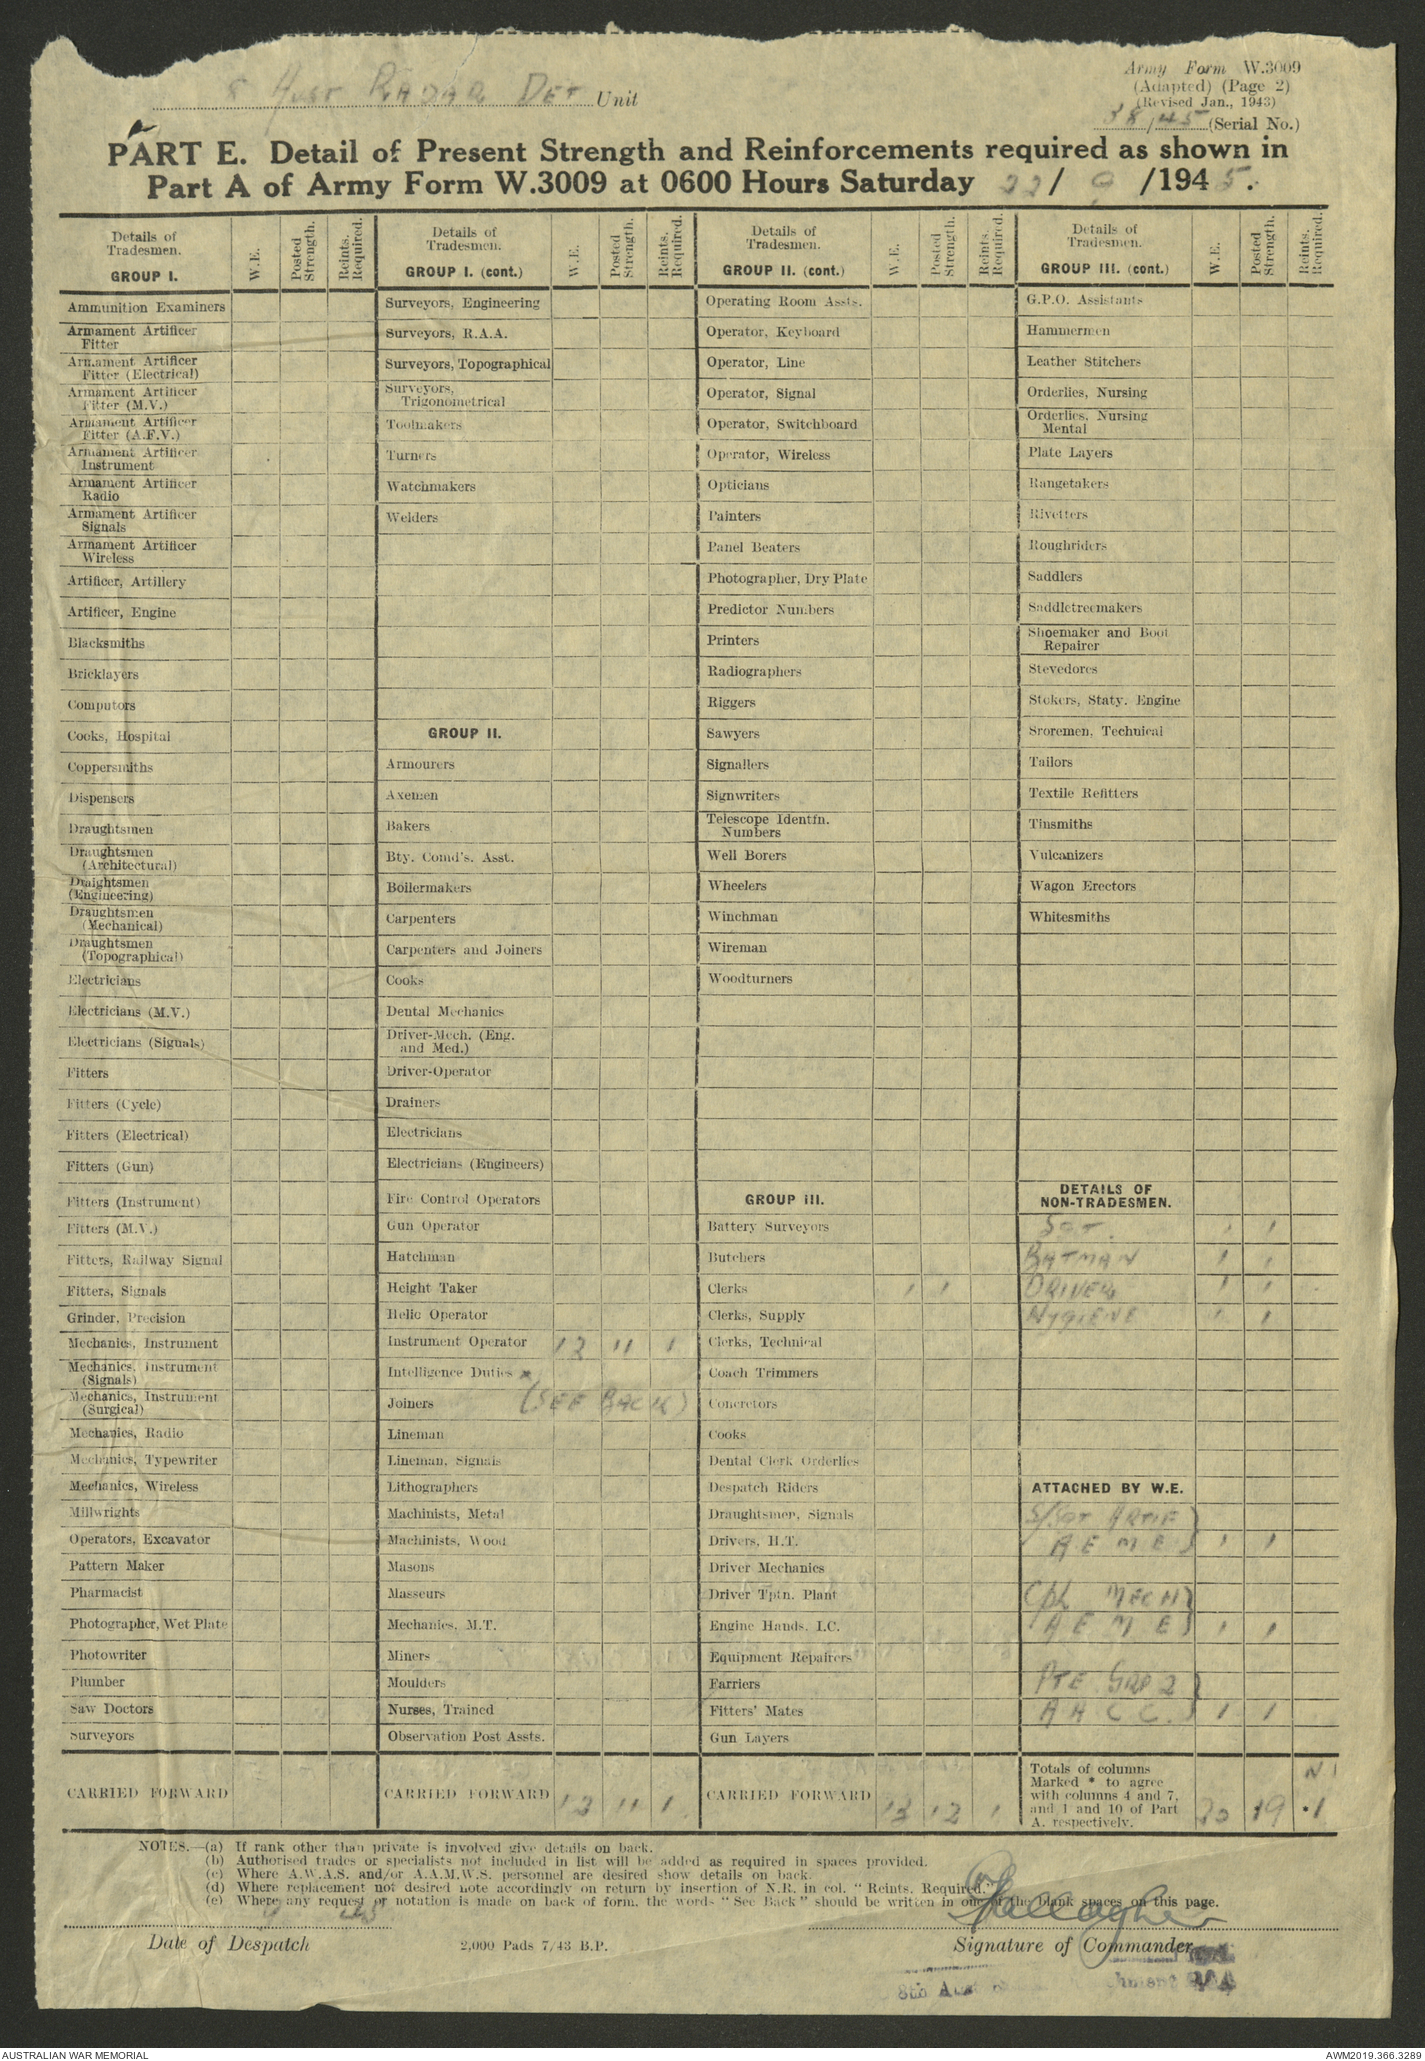 8 Aust RADAR DET Unit
Army Form W.3009
(Adapted) (Page 2)
(Revised Jan., 1943)
38/45 (Serial No.)
PART E. Detail of Present Strength and Reinforcements required as shown in
Part A of Army Form W.3009 at 0600 Hours Saturday 22/ 9 /1945.
Details of
Tradesmen.
GROUP I.
W.E.
Posted
Strength.
Reints.
Required.
Ammunition Examiners
Armament Artificer
Fitter
Armament Artificer
Fitter (Electrical)
Armament Artificer
Fitter (M.V.)
Armament Artificer
Fitter (A.F.V.)
Armament Artificer
Instrument
Armament Artificer
Radio
Armament Artificer
Signals
Armament Artificer
Wireless
Artificer, Artillery
Artificer, Engine
Blacksmiths
Bricklayers
Computors
Cooks, Hospital
Coppersmiths
Dispensers
Draughtsmen
Draughtsmen
(Architectural)
Draightsmen
(Engineering)
Draughtsmen
(Mechanical)
Draughtsmen
(Topographical)
Electricians
Electricians (M.V.)
Electricians (Signals)
Fitters
Fitters (Cycle)
Fitters (Electrical)
Fitters (Gun)
Fitters (Instrument)
Fitters (M.V.)
Fitters, Railway Signal
Fitters, Signals
Grinder, Precision
Mechanics, Instrument
Mechanics, Instrument
(Signals)
Mechanics, Instrument
(Surgical)
Mechanics, Radio
Mechanics, Typewriter
Mechanics, Wireless
Millwrights
Operators, Excavator
Pattern Maker
Pharmacist
Photographer, Wet Plate
Photowriter
Plumber
Saw Doctors
Surveyors
CARRIED FORWARD
Details of
Tradesmen.
GROUP I. (cont.)
W.E.
Posted
Strength.
Reints.
Required.
Surveyors, Engineering
Surveyors, R.A.A.
Surveyors, Topographical
Surveyors,
Trigonometrical
Toolmakers
Turners
Watchmakers
Welders
GROUP II.
Armourers
Axemen
Bakers
Bty. Comd's. Asst.
Boilermakers
Carpenters
Carpenters and Joiners
Cooks
Dental Mechanics
Driver-Mech. (Eng.
and Med.)
Driver-Operator
Drainers
Electricians
Electricians (Engineers)
Fire Control Operators
Gun Operator
Hatchman
Height Taker
Helio Operator
Instrument Operator 12 11 1
Intelligence Duties x
Joiners (SEE BACK)
Lineman
Lineman, Signals
Lithographers
Machinists, Metal
Machinists, Wood
Masons
Masseurs
Mechanics, M.T.
Miners
Moulders
Nurses, Trained
Observation Post Assts.
CARRIED FORWARD 12 11 1
Details of
Tradesmen.
GROUP II. (cont.)
W.E.
Posted
Strength.
Reints.
Required.
Operating Room Assts.
Operator, Keyboard
Operator, Line
Operator, Signal
Operator, Switchboard
Operator, Wireless
Opticians
Painters
Panel Beaters
Photographer, Dry Plate
Predictor Numbers
Printers
Radiographers
Riggers
Sawyers
Signallers
Signwriters
Telescope Identfn.
Numbers
Well Borers
Wheelers
Winchman
Wireman
Woodturners
GROUP III.
Battery Surveyors
Butchers
Clerks 1 1
Clerks, Supply
Clerks, Technical
Coach Trimmers
Concretors
Cooks
Dental Clerk Orderlies
Despatch Riders
Draughtsmen, Signals
Drivers, H.T.
Driver Mechanics
Driver Tptn. Plant
Engine Hands, I.C.
Equipment Repairers
Farriers
Fitters' Mates
Gun Layers
CARRIED FORWARD 13 12 1
Details of
Tradesmen.
GROUP III. (cont.)
W.E.
Posted
Strength.
Reints.
Required.
G.P.O. Assistants
Hammermen
Leather Stitchers
Orderlies, Nursing
Orderlies, Nursing
Mental
Plate Layers
Rangetakers
Rivetters
Roughriders
Saddlers
Saddletreemakers
Shoemaker and Boot
Repairer
Stevedores
Stokers, Staty. Engine
Sroremen, Technical
Tailors
Textile Refitters
Tinsmiths
Vulcanizers
Wagon Erectors
Whitesmiths
DETAILS OF
NON-TRADESMEN.
SGT. 1 1
BATMAN 1 1
DRIVER 1 1
HYGIENE 1 1
ATTACHED BY W.E.
S/SGT ARTIF
A E M E 1 1
Cpl MECH
A E M E 1 1
PTE GRP 2
A A C C. 1 1
Totals of columns
Marked * to agree
with columns 4 and 7,
and 1 and 10 of Part
A, respectively.
20 19 1
NOTES.—(a) If rank other than private is involved give details on back.
(b) Authorised trades or specialists not included in list will be added as required in spaces provided.
(c) Where A.W.A.S. and/or A.A.M.W.S. personnel are desired show details on back.
(d) Where replacement not desired note accordingly on return by insertion of N.R. in col. "Reints. Required."
(e) Where any request or notation is made on back of form, the words "See Back" should be written in one of the blank spaces on this page.
Date of Despatch
2,000 Pads 7/43 B.P.
Gallagher
Signature of Commander
8th Aust
AUSTRALIAN WAR MEMORIAL
AWM2019.366.3289